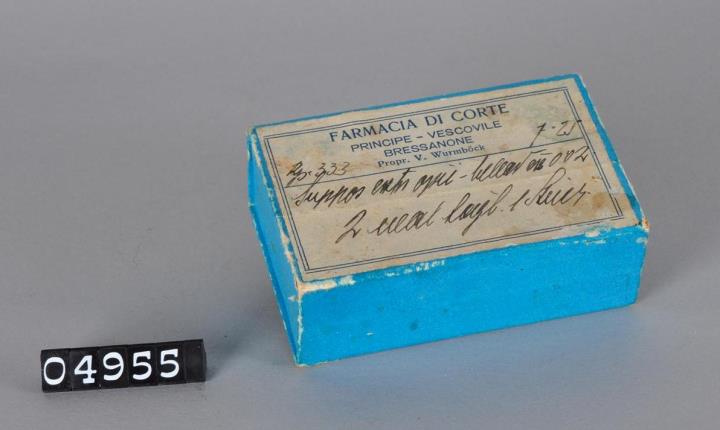 FARMACIA DI CORTE
PRINCIPE - VESCOVILE
BRESSANONE
Propr. V. Wurmböck
333 7-25
Suppos extr opii - bellad āā 002
2 mal tägl. 1
04955